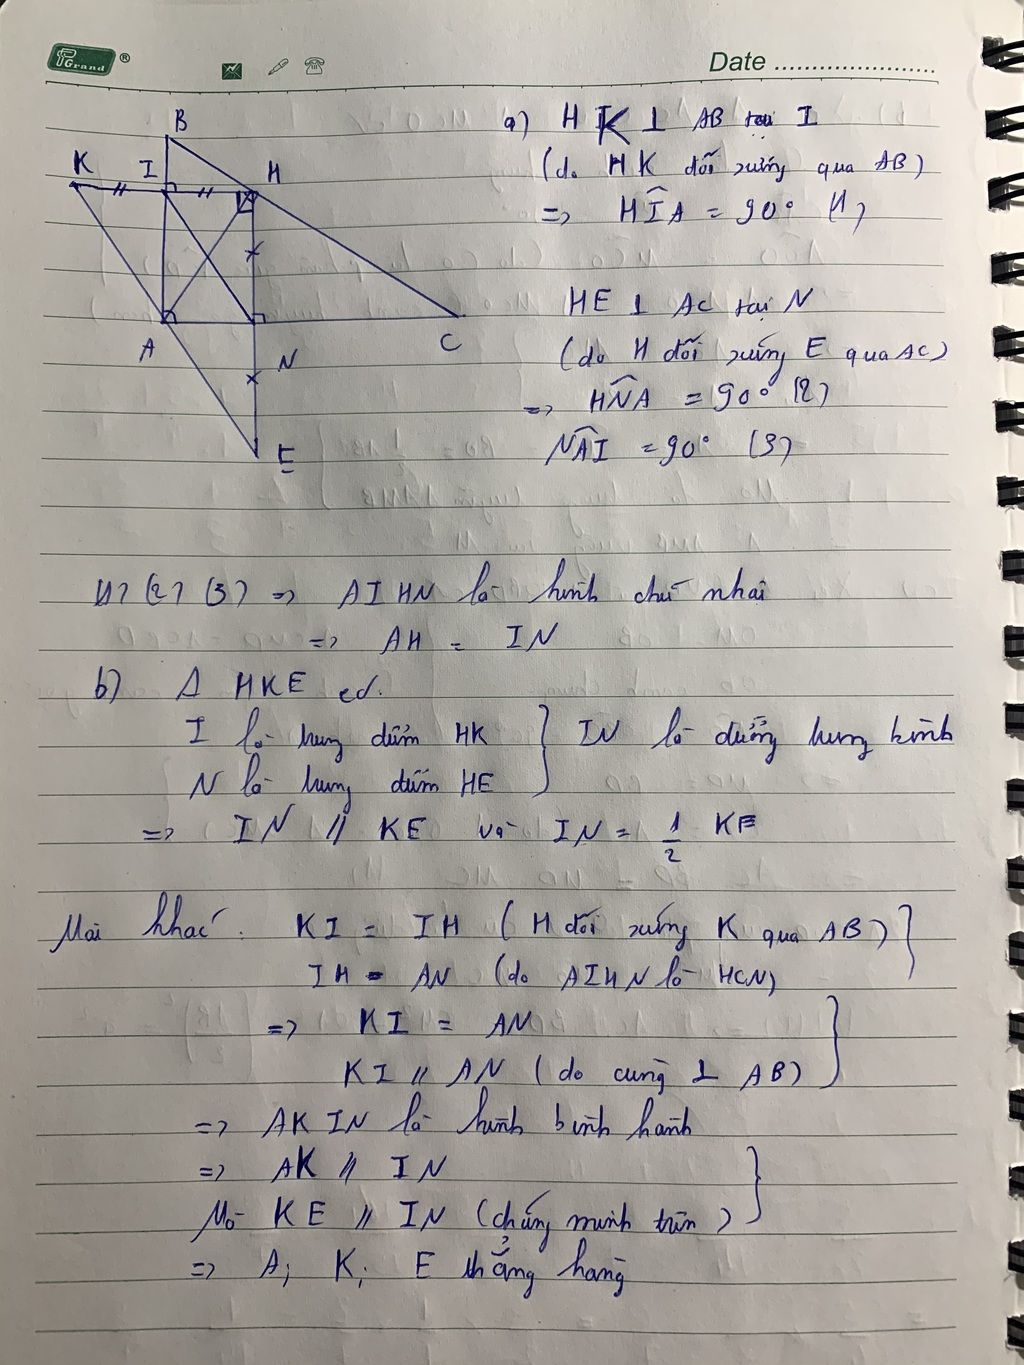 Grand ®
Date ........................
B
K I H
A N C
E
a) HK ⊥ AB tại I
(do HK đối xứng qua AB)
=> HÎA = 90° (1)
HE ⊥ AC tại N
(do H đối xứng E qua AC)
=> HN̂A = 90° (2)
NÂI = 90° (3)
(1) (2) (3) => AIHN là hình chữ nhật
=> AH = IN
b) Δ HKE có.
I là trung điểm HK } IN là đường trung bình
N là trung điểm HE
=> IN // KE và IN = 1/2 KE
Mặt khác: KI = IH (H đối xứng K qua AB) }
IH = AN (do AIHN là HCN)
=> KI = AN }
KI // AN (do cùng ⊥ AB)
=> AKIN là hình bình hành
=> AK // IN }
Mà KE // IN (chứng minh trên)
=> A; K; E thẳng hàng